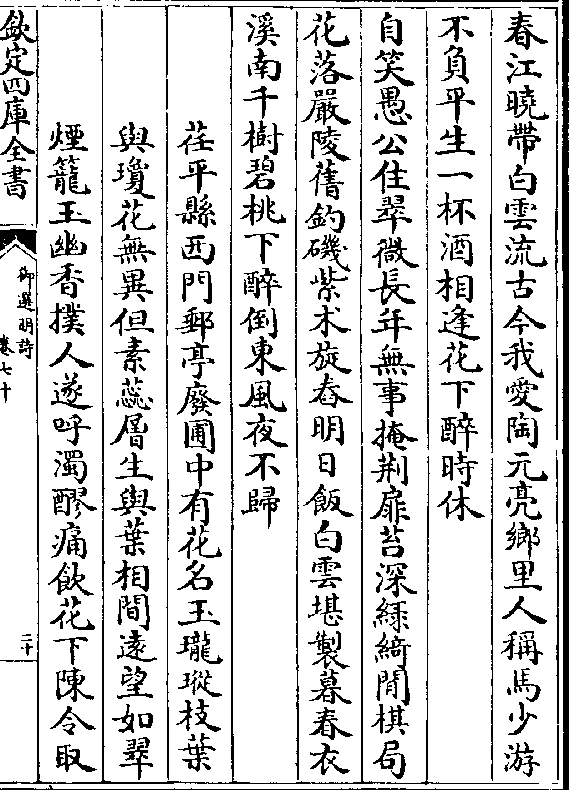 春江曉帶白雲流古今我愛陶元亮鄉里人稱馬少游
不負平生一杯酒相逢花下醉時休
自笑愚公住翠微長年無事掩荆扉苔深緑綺閒棋局
花落嚴陵舊釣磯紫术旋舂明日飯白雲堪製暮春衣
溪南千樹碧桃下醉倒東風夜不歸
茌平縣西門郵亭廢圃中有花名玉瓏瑽枝葉
與瓊花無異但素蕊層生與葉相間遠望如翠
煙籠玉幽香撲人遂呼濁醪痛飲花下陳令取
欽定四庫全書
御選明詩
卷七十
二十